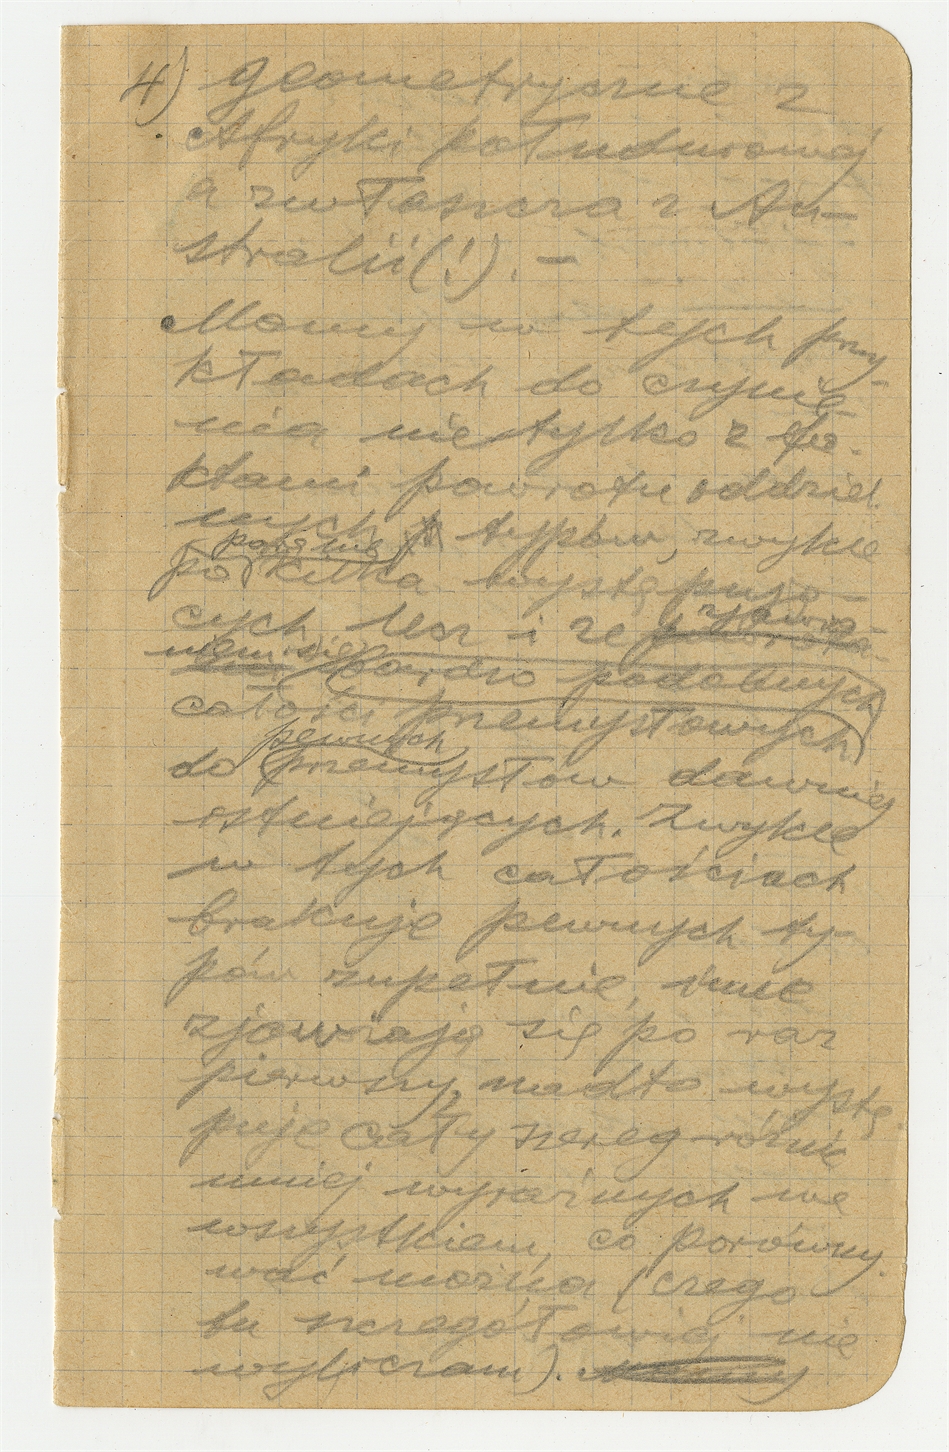 4) geometryczne z
Afryki południowej
a zwłaszcza z Au-
stralii (!). –
Mamy w tych przy-
kładach do czynie-
nia nie tylko z fa-
ktami powrotu oddziel-
nych typów, zwykle
pojęcie
po kilka występują-
cych, lecz i ze zjawia-
niem się bardzo podobnych
całości przemysłowych
pewnych
do przemysłów dawniej
istniejących. Zwykle
w tych całościach
brakuje pewnych ty-
pów zupełnie, inne
zjawiają się po raz
pierwszy, nadto wystę-
puje cały szereg różnic
mniej wyraźnych we
wszystkiem, co porówny-
wać można (czego
tu szczegółowiej nie
wyliczam).